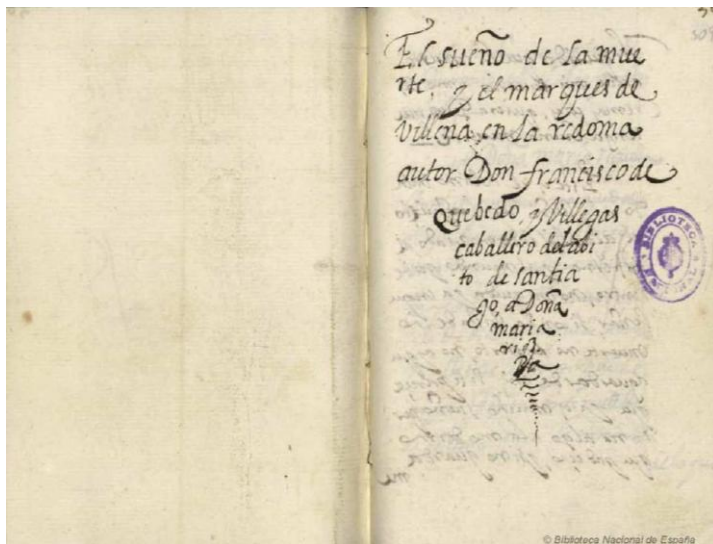 El sueño de la mue
rte, y el marques de
villena, en la redoma
autor Don francisco de
Quebedo, y Villegas
caballero del abi
to de santia
go, a Doña
maria
BIBLIOTECA
© Biblioteca Nacional de España